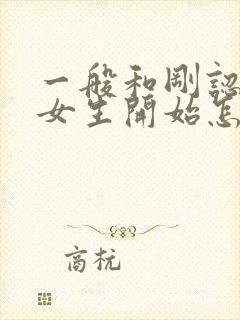 一般和剛認
女生開始怎
商杬